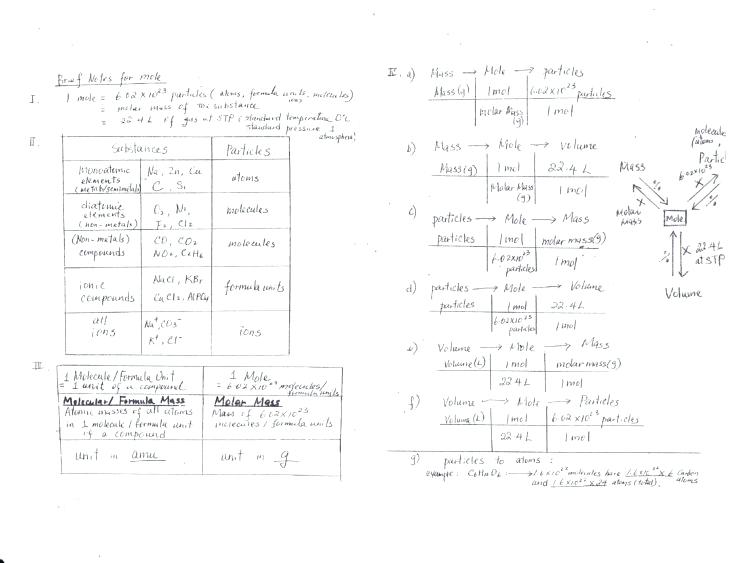 Brief Notes for mole
I. 1 mole = 6.02 x 10²³ particles ( atoms, formula units, molecules)
ions
= molar mass of the substance
= 22.4 L if gas at STP ; standard temperature 0°C
standard pressure 1
atmosphere)
II.
Substances Particles
monoatomic elements (metals/semimetals) Na, Zn, Cu
C, Si atoms
diatomic elements (non-metals) O₂, N₂,
F₂, Cl₂ molecules
(Non-metals) compounds CO, CO₂
NO₂, C₂H₆ molecules
ionic compounds NaCl, KBr
CaCl₂, AlPO₄ formula units
all ions Na⁺, CO₃⁻
K⁺, Cl⁻ ions
III.
1 Molecule/Formula Unit
= 1 unit of a compound
1 Mole
= 6.02 x 10²³ molecules/
formula units
Molecular/Formula Mass
Atomic masses of all atoms
in 1 molecule/formula unit
of a compound
Molar Mass
Mass of 6.02x10²³
molecules/formula units
unit in amu
unit in g
IV. a) Mass → Mole → particles
Mass(g) 1 mol 6.02x10²³ particles
molar Mass (g) 1 mol
b) Mass → Mole → volume
Mass(g) 1 mol 22.4 L
Molar Mass (g) 1 mol
c) particles → Mole → Mass
particles 1 mol molar mass(g)
6.02x10²³ particles 1 mol
d) particles → Mole → Volume
particles 1 mol 22.4 L
6.02x10²³ particles 1 mol
e) Volume → Mole → Mass
Volume(L) 1 mol molar mass(g)
22.4 L 1 mol
f) Volume → Mole → Particles
Volume(L) 1 mol 6.02 x10²³ particles
22.4 L 1 mol
g) particles to atoms :
example : → 1.6x10²² molecules have 1.6x10²² x 6 Carbon
atoms
and 1.6x10²² x 24 atoms (total).
molecule
(atoms,
Partic
Mass
6.02x10²³
%
X
%
X
Molar
Mass
Mole
%
X 22.4L
at STP
Volume